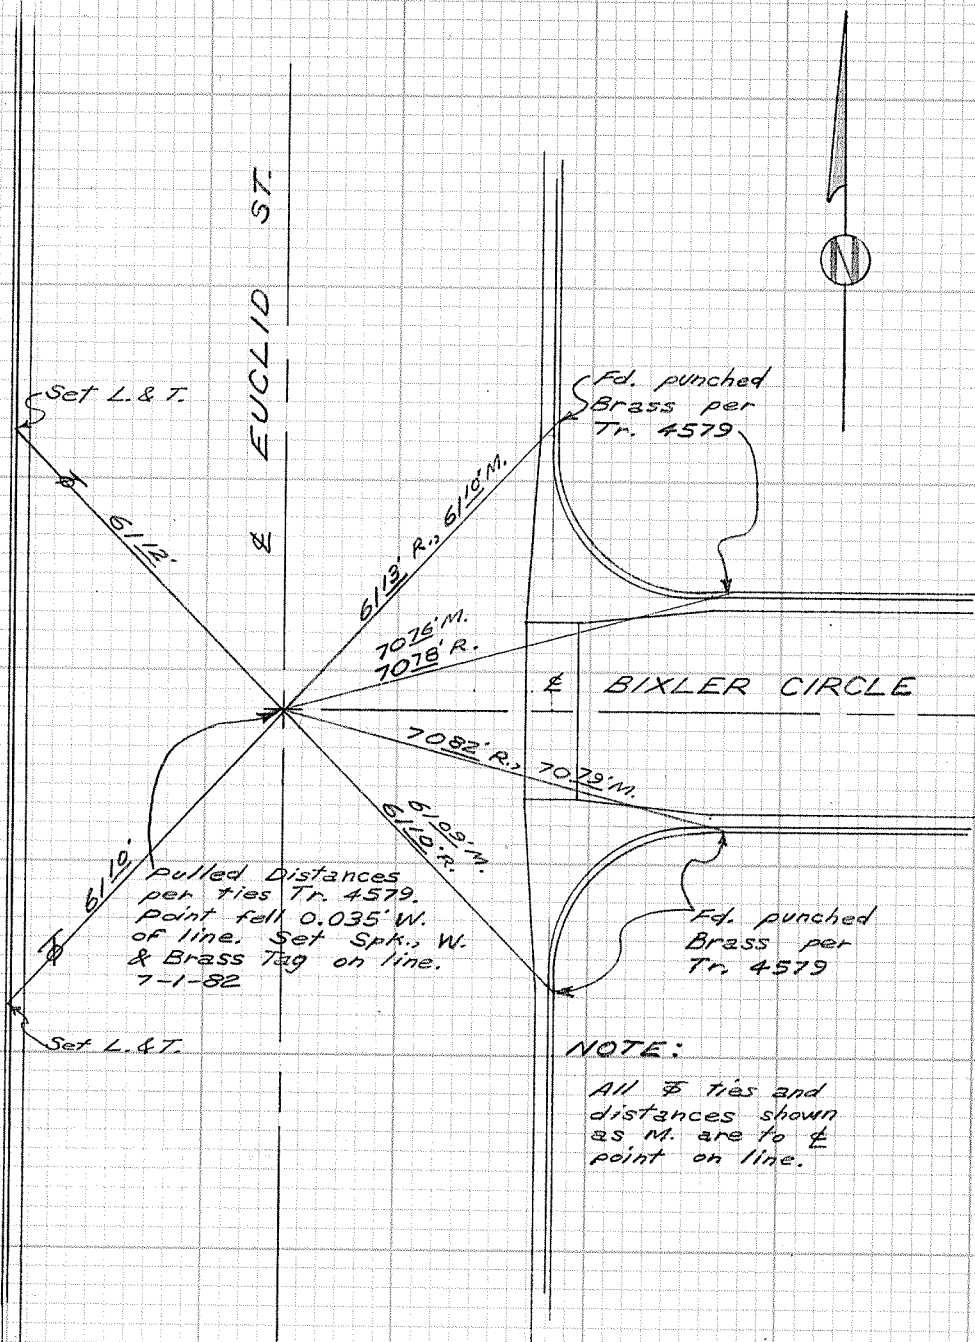 ℄ EUCLID ST.
N
Set L. & T.
Fd. punched
Brass per
Tr. 4579
61 12'
61 13' R., 61 10' M.
70 76' M.
70 78' R.
℄ BIXLER CIRCLE
70 82' R., 70 79' M.
61 09' M.
61 10' R.
61 10'
Pulled Distances
per ties Tr. 4579.
Point fell 0.035' W.
of line. Set Spk., W.
& Brass Tag on line.
7-1-82
Fd. punched
Brass per
Tr. 4579
Set L. & T.
NOTE:
All ties and
distances shown
as M. are to ℄
point on line.